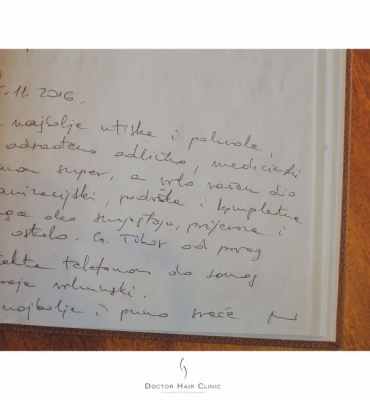 .12 2016.
najbolje utiske i pohvale,
odrađeno odlično, medicinski
super, a vrlo važan dio
anizacijski, podrška i kompletna
oko smještaja, prijevoza i
ostalo. G. Tibor od prvog
takta telefonom do samog
vrhunski.
najbolje i puno sreće
DOCTOR HAIR CLINIC